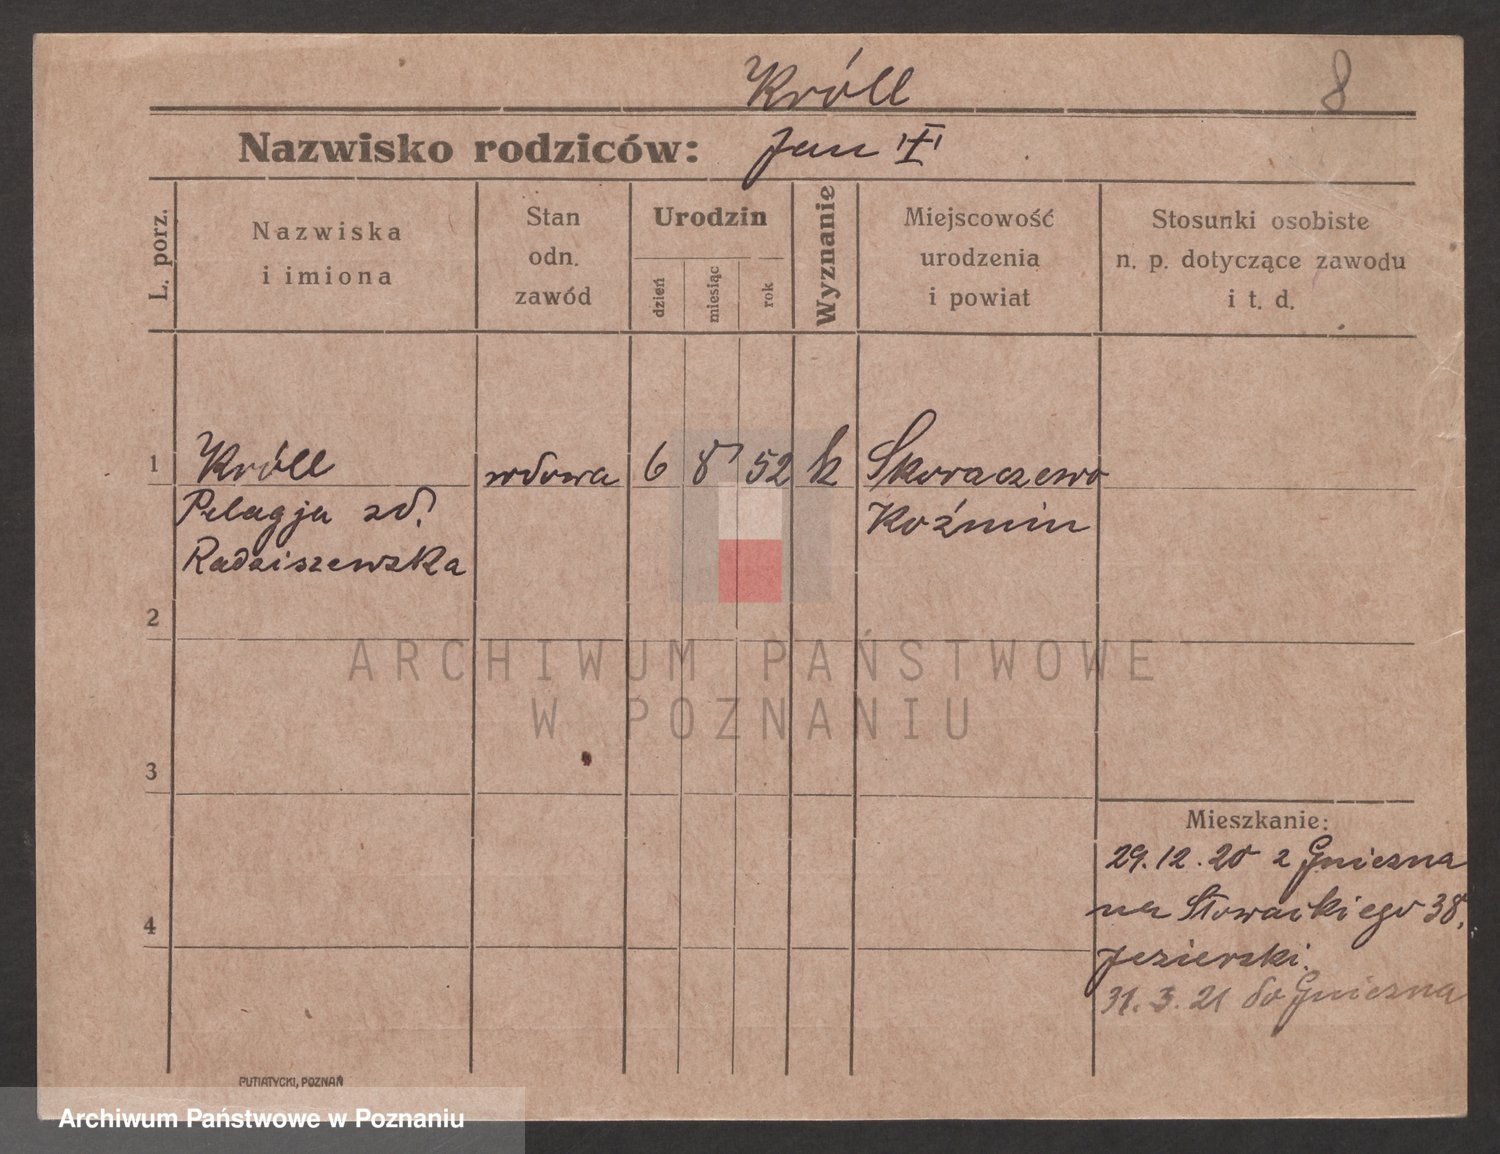 Króll
8
Nazwisko rodziców: Jan
L. porz.
Nazwiska
i imiona
Stan
odn.
zawód
Urodzin
dzień
miesiąc
rok
Wyznanie
Miejscowość
urodzenia
i powiat
Stosunki osobiste
n. p. dotyczące zawodu
i t. d.
1 Króll wdowa 6 8 52 k Skoraczewo
Pelagja zd. Koźmin
Radziszewska
2
ARCHIWUM PAŃSTWOWE
W POZNANIU
3
Mieszkanie:
29.12.20 z Gniezna
na Słowackiego 38,
4
Jezierski.
31.3.21 do Gniezna
PUTIATYCKI, POZNAŃ
Archiwum Państwowe w Poznaniu